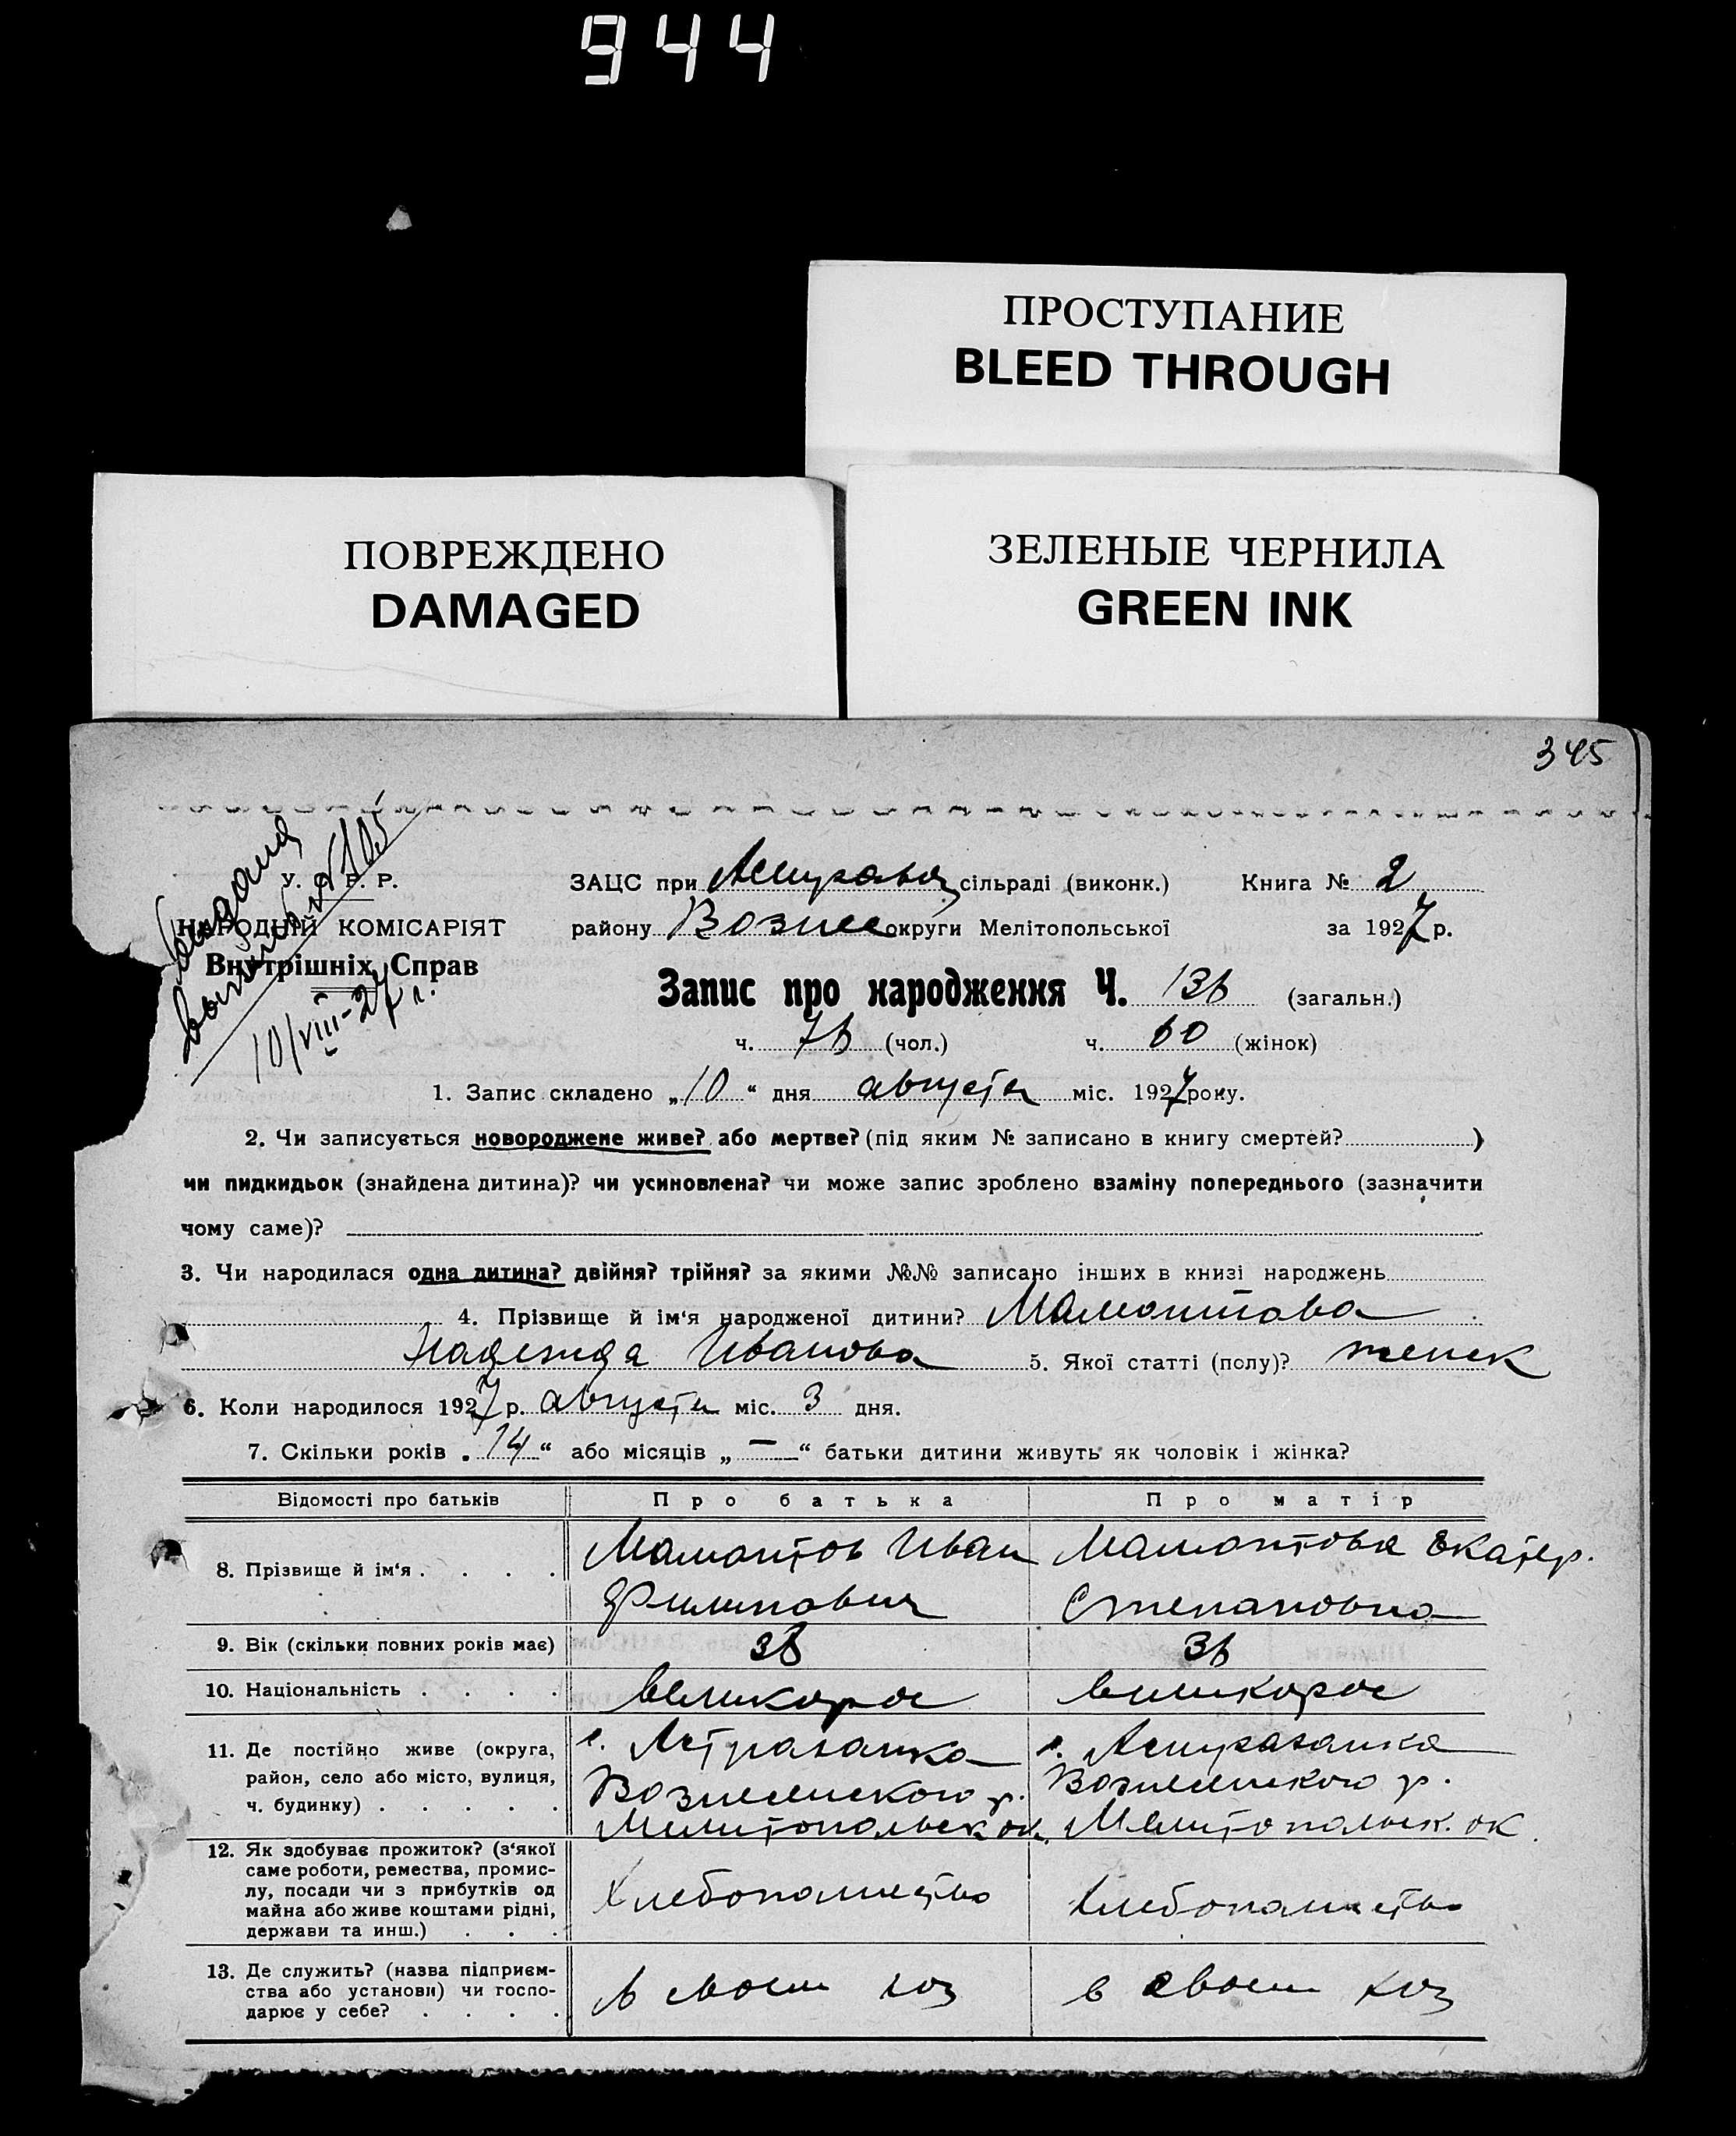 944
ПРОСТУПАНИЕ
BLEED THROUGH
ПОВРЕЖДЕНО
DAMAGED
ЗЕЛЕНЫЕ ЧЕРНИЛА
GREEN INK
345
Выдана
выпись № 105
10/VIII-27 г.
У. С. Р. Р.
НАРОДНІЙ КОМІСАРІЯТ
Внутрішніх Справ
ЗАЦС при Астрахан сільраді (виконк.) Книга № 2
району Вознес округи Мелітопольської за 1927 р.
Запис про народження Ч. 136 (загальн.)
ч. 76 (чол.) ч. 60 (жінок)
1. Запис складено „10“ дня августа міс. 1927 року.
2. Чи записується новороджене живе? або мертве? (під яким № записано в книгу смертей? )
чи пидкидьок (знайдена дитина)? чи усиновлена? чи може запис зроблено взаміну попереднього (зазначити
чому саме)?
3. Чи народилася одна дитина? двійня? трійня? за якими №№ записано інших в книзі народжень
4. Прізвище й ім‘я народженої дитини? Мамонтова
Надежда Иванова 5. Якої статті (полу)? женск
6. Коли народилося 1927 р. августа міс. 3 дня.
7. Скільки років „14“ або місяців „—“ батьки дитини живуть як чоловік і жінка?
Відомості про батьків Про батька Про матір
8. Прізвище й ім‘я . . . . Мамонтов Иван Мамонтова Екатер.
Филипович Степановна
9. Вік (скільки повних років має) 38 36
10. Національність . . . . великорос великорос
11. Де постійно живе (округа, с. Астраханка с. Астраханка
район, село або місто, вулиця, Вознесенского р. Вознесенкого р.
ч. будинку) . . . . . Мелитопольск ок. Мелитопольск. ок.
12. Як здобуває прожиток? (з‘якої
саме роботи, ремества, промис-
лу, посади чи з прибутків од Хлебопашество Хлебопашество
майна або живе коштами рідні,
держави та инш.) . . .
13. Де служить? (назва підприєм-
ства або установи) чи госпо- в своем хоз в своем хоз
дарює у себе? . . . .